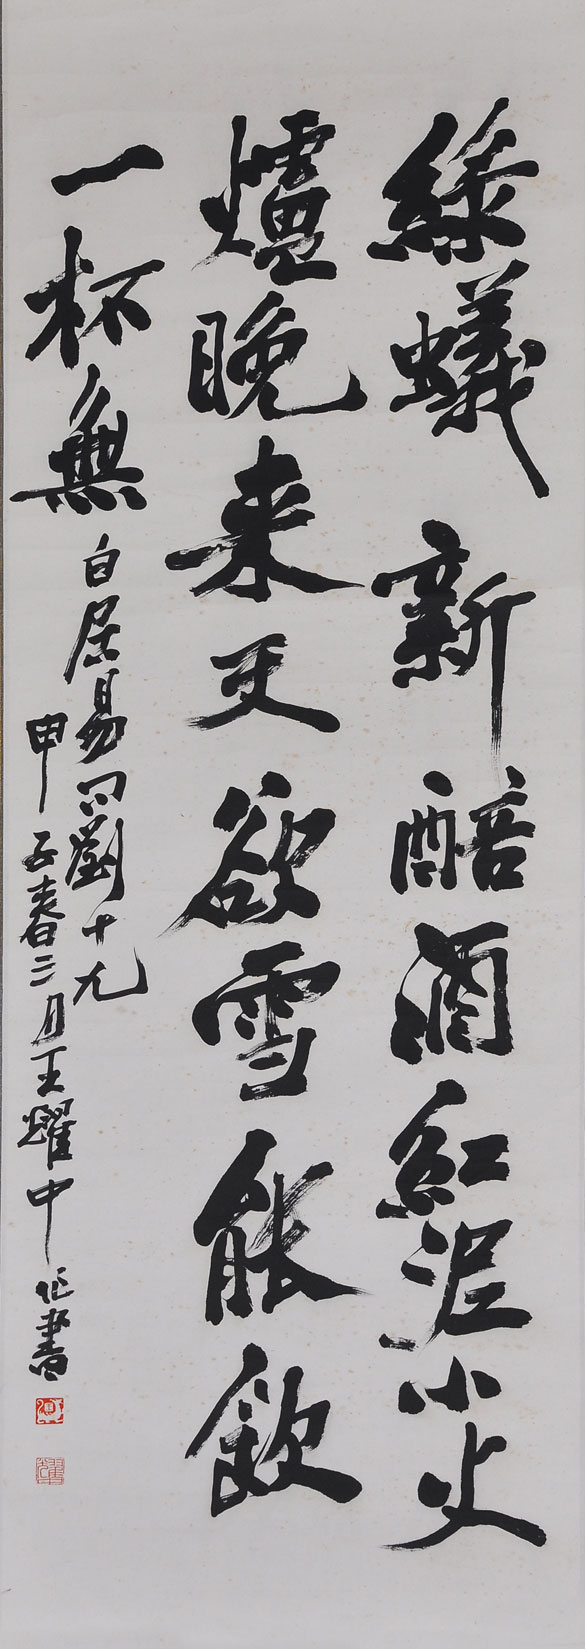 綠蟻新醅酒紅泥小火
爐晚来天欲雪能飲
一杯無
白居易問劉十九
甲子春二月王躍中作書